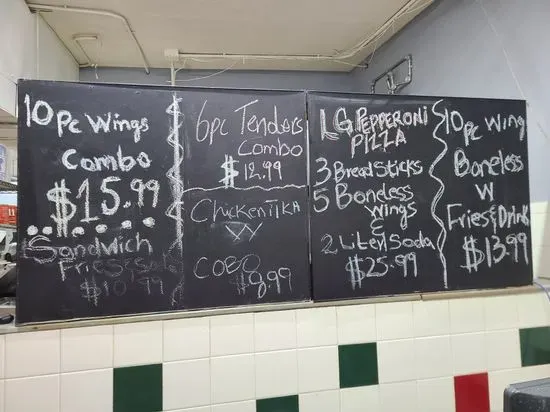 10 Pc Wings
Combo
$15.99
Sandwich
Fries & Soda
$10.99
6pc Tenders
Combo
$12.99
Chicken TIKA
COBO $9.99
1 LG PEPPERONI
PIZZA
3 Bread Sticks
5 Boneless
Wings
&
2 Liter Soda
$25.99
10 Pc Wing
Boneless
W
Fries & Drink
$13.99